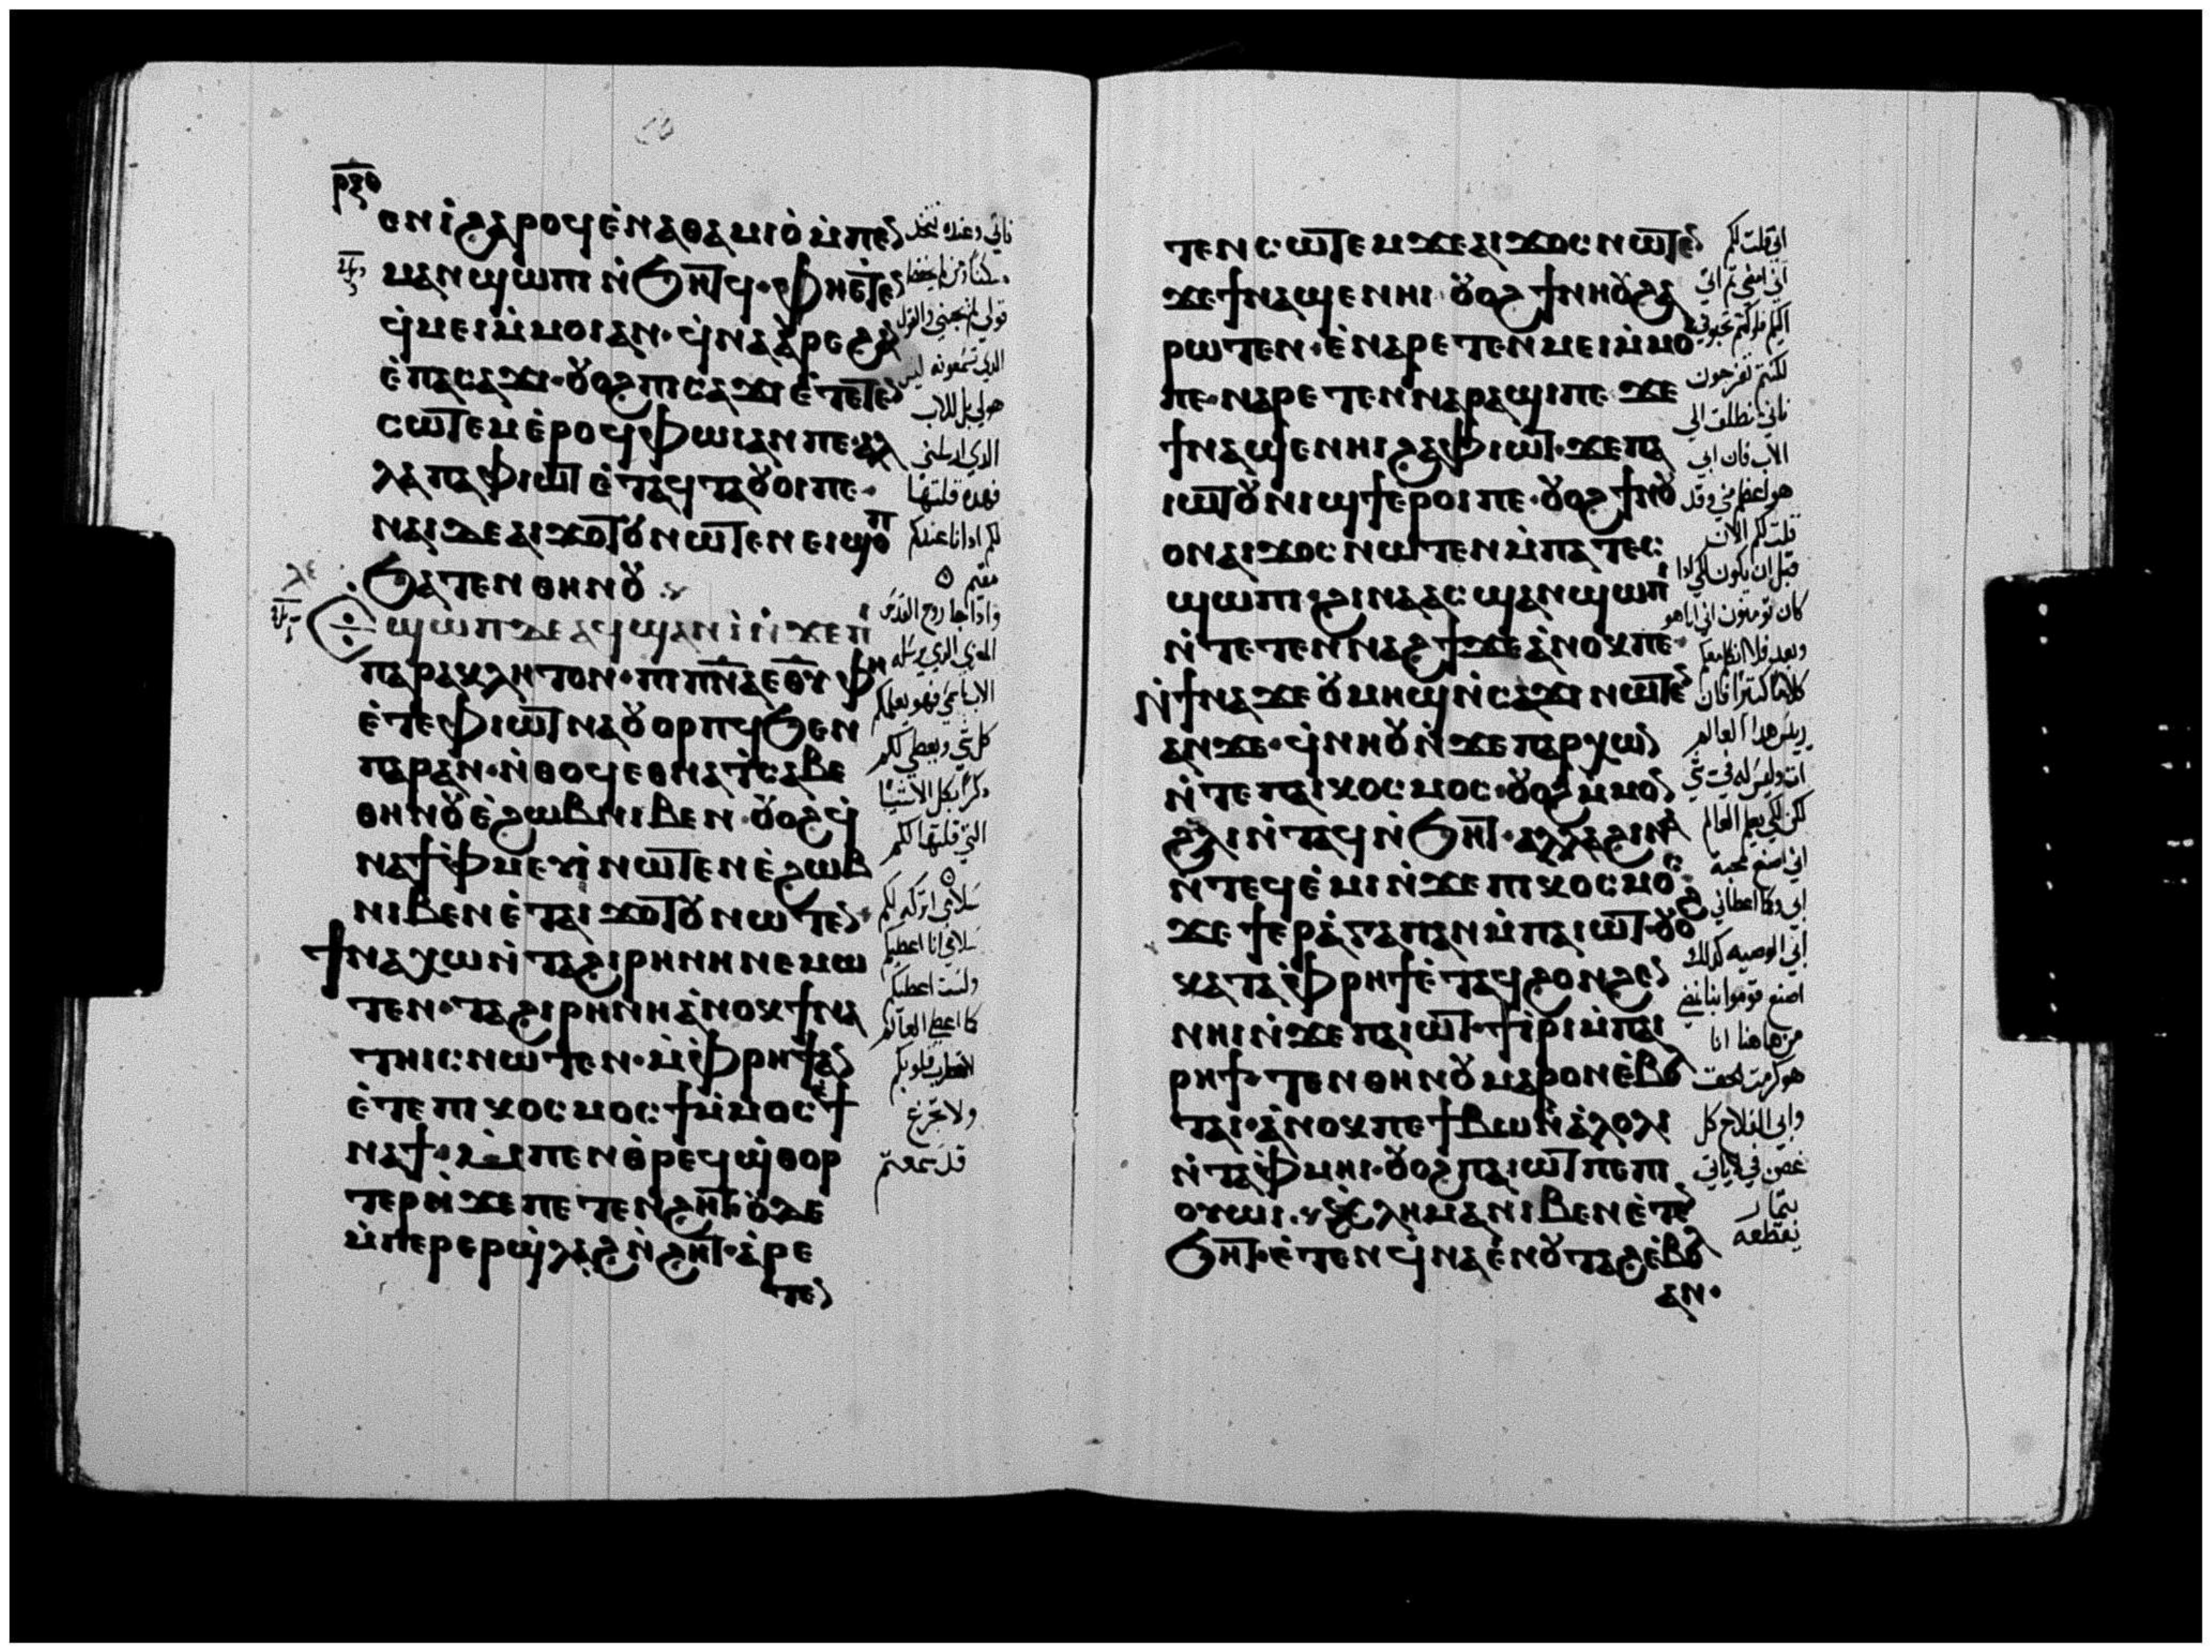 ⲣⲝⲑ
ⲉⲛⲓ̀ϩⲁⲣⲟϥⲉ̀ⲛⲁⲑⲁⲙⲓⲟ̀ⲙ̀ⲡⲉ
ⲙⲁⲛϣⲱⲡⲓ ⲛ̀ϧⲏⲧϥ· ⲫⲏⲉ̀ⲧⲉ
ϥ̀ⲙⲉⲓⲙ̀ⲙⲟⲓⲁⲛ· ϥ̀ⲛⲁⲁ̀ⲣⲉϩⲁⲛ
ⲉ̀ⲡⲁⲥⲁϫⲓ· ⲟⲩⲟϩⲡⲓⲥⲁϫⲓ ⲉ̀ⲧⲉⲧⲉ
ⲥⲱⲧⲉⲙⲉ̀ⲣⲟϥ ⲫⲱⲓⲁⲛⲡⲉ· ⲁⲗ
ⲗⲁ ⲡⲁⲫⲓⲱⲧ ⲉ̀ⲧⲁϥⲧⲁⲟⲩⲟⲓⲡⲉ·
ⲛⲁⲓⲇⲉⲁⲓϫⲟⲧⲟⲩⲛⲱⲧⲉⲛⲉⲓϣⲟⲡ
ϧⲁⲧⲉⲛⲑⲏⲛⲟⲩ
ϣⲱⲡⲇⲉⲁϥϣⲁⲛⲓ̀ⲛ̀ϫⲉⲡⲓ
ⲡⲁⲣⲁⲕⲗⲏⲧⲟⲛ· ⲡⲓⲡ̅ⲛ̅ⲁ̅ⲉ̅ⲑ̅ⲩ̅ ⲫⲏ
ⲉ̀ⲧⲉⲫⲓⲱⲧⲛⲁⲟⲩⲟⲣⲡϥϧⲉⲛ
ⲡⲁⲣⲁⲛ· ⲛ̀ⲑⲟϥⲉⲑⲛⲁⲧ̀ⲥⲁⲃⲉ
ⲑⲏⲛⲟⲩⲉ̀ϩⲱⲃⲛⲓⲃⲉⲛ· ⲟⲩⲟϩϥ̀
ⲛⲁϯⲫ̀ⲙⲉⲩⲓ̀ⲛⲱⲧⲉⲛⲉ̀ϩⲱⲃ
ⲛⲓⲃⲉⲛⲉ̀ⲧⲁⲓϫⲟⲧⲟⲩⲛⲱⲧⲉ
ϯⲛⲁⲭⲱⲛ̀ⲧⲁϩⲓⲣⲏⲛⲏⲛⲉⲙⲱ
ⲧⲉⲛ· ⲧⲁϩⲓⲣⲏⲛⲏⲁ̀ⲛⲟⲕϯⲛⲁ
ⲧⲏⲓⲥⲛⲱⲧⲉⲛ· ⲙ̀ⲫ̀ⲣⲏϯⲁⲛ
ⲉ̀ⲧⲉⲡⲓⲕⲟⲥⲙⲟⲥϯⲙ̀ⲙⲟⲥⲉ̀ϯ
ⲛⲁϯ· ⲙ̀ⲡⲉⲛⲑ̀ⲣⲉϥϣ̀ⲑⲟⲣ
ⲧⲉⲣⲛ̀ϫⲉⲡⲉⲧⲉⲛϩⲏⲧ· ⲟⲩⲇⲉ
ⲙ̀ⲡⲉⲣⲉⲣϣ̀ⲗⲁϩⲛ̀ϩⲏⲧ· ⲁ̀ⲣⲉ
ⲧⲉ
فاتي وعنده نتخذ
مسكنا ومن لم يحفظ
قولي لم يحبني والقول
الذي تسمعونه ليس
هو لي بل للاب
الذي ارسلني
فهذه قلتها
لكم اذ انا عندكم
مقيم
واذا جا روح القدس
المعزي الذي يرسله
الاب باسمي فهو يعلمكم
كل شي ويعطي لكم
ذكرا بكل الاشيا
التي قلتها لكم
سلامي اتركه لكم
سلامي انا اعطيكم
ولست اعطيكم
كما اعطى العالم
لا تضطرب قلوبكم
ولا تجزع
قد سمعتم
ⲧⲉⲛⲥⲱⲧⲉⲙϫⲉⲁⲓϫⲟⲥⲛⲱⲧⲉ
ϫⲉϯⲛⲁϣⲉⲛⲏⲓ ⲟⲩⲟϩϯⲛⲏⲟⲩϩⲁ
ⲣⲱⲧⲉⲛ· ⲉ̀ⲛⲁⲣⲉⲧⲉⲛⲙⲉⲓⲙ̀ⲙⲟⲓ
ⲡⲉ· ⲛⲁⲣⲉⲧⲉⲛⲛⲁⲣⲁϣⲓⲡⲉ ϫⲉ
ϯⲛⲁϣⲉⲛⲏⲓϩⲁⲫⲓⲱⲧ· ϫⲉⲡⲁ
ⲓⲱⲧⲟⲩⲛⲓϣϯⲉⲣⲟⲓⲡⲉ· ⲟⲩⲟϩϯⲛⲟⲩ
ⲟⲛⲁⲓϫⲟⲥⲛⲱⲧⲉⲛⲙ̀ⲡⲁⲧⲉⲥ
ϣⲱⲡⲓ· ϩⲓⲛⲁⲁⲥϣⲁⲛϣⲱⲡⲓ
ⲛ̀ⲧⲉⲧⲉⲛⲛⲁϩϯϫⲉⲁ̀ⲛⲟⲕⲡⲉ·
ⲛ̀ϯⲛⲁϫⲉⲟⲩⲙⲏϣⲛ̀ⲥⲁϫⲓ ⲛⲱⲧⲉ
ⲁⲛϫⲉ· ϥ̀ⲛⲏⲟⲩⲛ̀ϫⲉⲡⲁⲣⲭⲱ
ⲛ̀ⲧⲉⲡⲁⲓⲕⲟⲥⲙⲟⲥ· ⲟⲩⲟϩⲙ̀ⲙⲟ
ϩⲗⲓⲛ̀ⲧⲁϥⲛ̀ϧⲏⲧ· ⲁⲗⲗⲁϩⲓⲛⲁ
ⲛ̀ⲧⲉϥⲉ̀ⲙⲓⲛ̀ϫⲉⲡⲓⲕⲟⲥⲙⲟⲥ
ϫⲉϯⲉⲣⲁ̀ⲅⲁⲡⲁⲛⲙ̀ⲡⲁⲓⲱⲧ· ⲟⲩⲟϩ
ⲕⲁⲧⲁⲫ̀ⲣⲏϯⲉ̀ⲧⲁϥϩⲟⲛϩⲉ
ⲛⲏⲓⲛ̀ϫⲉⲡⲁⲓⲱⲧ· ϯⲓ̀ⲣⲓⲙ̀ⲡⲁⲓ
ⲣⲏϯ· ⲧⲉⲛⲑⲏⲛⲟⲩⲙⲁⲣⲟⲛⲉ̀ⲃⲟⲗ
ⲧⲁⲓ· ⲁ̀ⲛⲟⲕⲡⲉϯⲃⲱⲛ̀ⲁ̀ⲗⲟⲗⲓ
ⲛ̀ⲧⲁⲫ̀ⲙⲏⲓ· ⲟⲩⲟϩⲡⲁⲓⲱⲧⲡⲉⲡⲓ
ⲟⲩⲱⲓ· ⲕ̀ⲗⲏⲙⲁⲛⲓⲃⲉⲛⲉ̀ⲧⲉ
ϧⲏⲧ· ⲉ̀ⲧⲉⲛϥ̀ⲛⲁⲉ̀ⲛⲟⲩⲧⲁϩⲉ̀ⲃⲟⲗ
ⲁⲛ·
اني قلت لكم
اني امضي ثم اتي
اليكم فلو كنتم تحبوني
لكنتم تفرحون
باني انطلق الى
الاب فان ابي
هو اعظم مني وقد
قلت لكم الان
قبل ان يكون لكي اذا
كان تومنون اني انا هو
وبعد فلا اتكلم معكم
كلاما كثيرا فان
ريس هذا العالم
ات وليس له في شي
لكن لكي يعلم العالم
اني اصنع محبة
ابي وكما اعطاني
ابي الوصيه كذلك
اصنع قوموا بنا نمضي
من هاهنا انا
هو كرمة الحق
وابي الفلاح كل
غصن في لا ياتي
بثمار
يقطعه